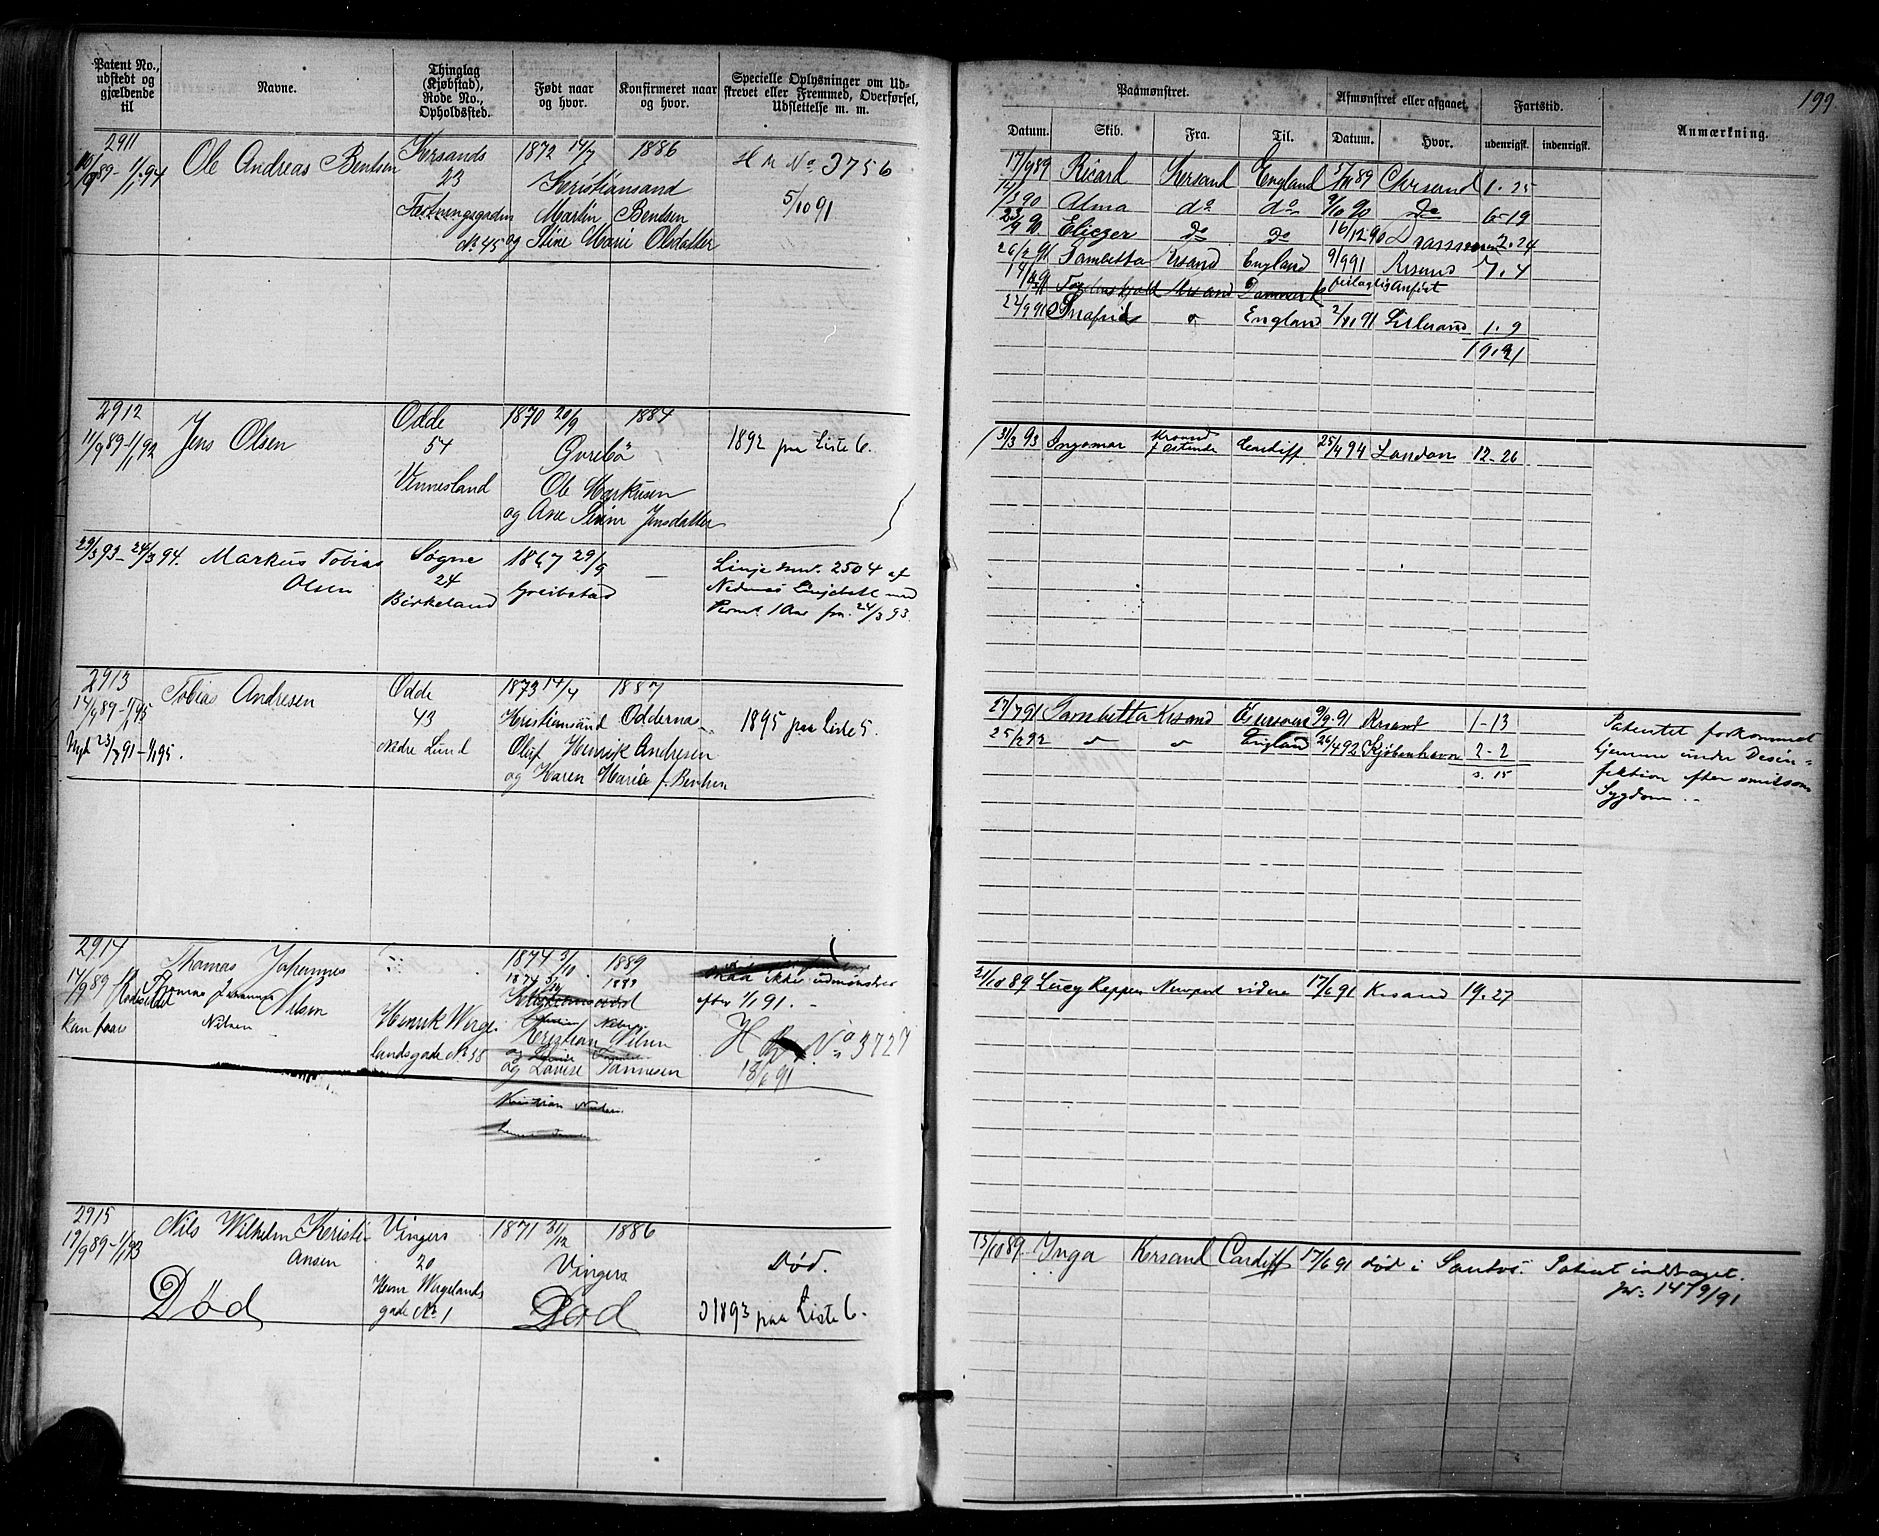 Patent No., udstedt og gjældende til
Navne.
Thinglag (Kjøbstad), Rode No., Opholdssted.
Født naar og hvor.
Konfirmeret naar og hvor.
Specielle Oplysninger om Udskrevet eller Fremmed, Overførsel, Udslettelse m. m.
2911
10/9 89 - 1/1 94
Ole Andreas Bentsen
Krsands
23
Fæstningsgaden
No 45
1872 14/7 1886
Kristiansand
Martin Bentsen
og Stine Marie Olsdatter
H No 3756
5/10 91
2912
11/9 89 - 1/1 92
Jens Olsen
Odde
54
Vennesland
1870 20/9 1884
Øvrebö
Ole Markusen
og Ane Jensdatter
1892 paa Liste 6.
29/3 93 - 24/3 94.
Markus Tobias
Olsen
Søgne
24
Birkeland
1867 29/9 —
Greibstad
Linje 2504 af
Nedenæs med
1 Aar fra 24/3 93.
2913
14/9 89 - 1/1 95
Nyt 23/7 91 - 1/1 95.
Tobias Andresen
Odde
43
Nedre Lund
1873 14/4 1887
Kristiansand Oddernæs
Oluf Henrik Andresen
og Karen Marie f. Bentsen
1895 paa Liste 5.
2914
14/9 89
kan fare
Thomas Johannes
Nilsen
Thomas Johannes
Nilsen
Henrik Werge-
landsgade No 38
1874 3/10 1889
Kristian Nilsen
og Lovise Tønnesen
Kristian Nilsen
ikke udmønstres
efter 1/1 91.
H No 3727
18/6 91
2915
19/9 89 - 1/1 93
Nils Wilhelm Kristi-
ansen
Død
Vingers
20
Henr Wergelands
gade No 1
1871 31/12 1886
Vingers
Død
Død.
1893 paa Liste 6.
199.
Paamønstret.
Afmønstret eller afgaaet.
Fartstid.
Anmærkning.
Datum. Skib. Fra. Til. Datum. Hvor. udenrigsk. indenrigsk.
17/9 89 Ricard Kersand England 5/11 89 Chrsand 1. 25
90 Alma do do 9/10 90 Do 6. 19
23/9 90 Eliezer Do Do 16/12 90 Drammen 2. 24
26/2 91 Gambetta Krsand England 9/9 91 Krsand 7. 4
Krsand Danmark feilagtig Anført
22/9 91 Snefrid " England 2/11 91 Lillesand 1. 9
19. 21
31/3 93 Ingomar Ostende Cardiff 25/4 94 London 12 - 26
27/7 91 Gambetta Krsand 9/9 91 Krsand 1 - 13
25/2 92 " " England 26/4 92 Kjøbenhavn 2 - 2
3. 15
Patentet forkommet
hjemme under Desin-
fektion efter smitsom
Sygdom.
21/10 89 Lucy Reppen Newport videre 17/6 91 Krsand 19. 27
15/10 89 Ynga Kersand Cardiff 17/6 91 død i Santos. Patent inddraget.
jr. 1479/91